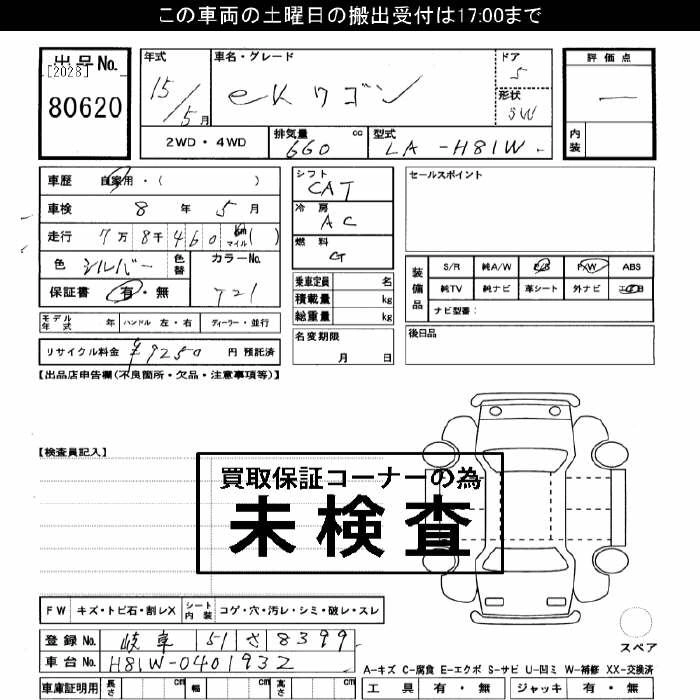 この車両の土曜日の搬出受付は17:00まで
出品No.
[2028]
80620
年式 15/5月
車名・グレード eKワゴン
ドア 5
形状 SW
2WD・4WD
排気量 660 cc
型式 LA-H81W
評価点 —
内装
車歴 自家用・( )
車検 8年 5月
走行 7万8千460 km マイル( )
色 シルバー 色替 カラーNo.
保証書 有・無
モデル年式 年 ハンドル 左・右 ディーラー・並行
リサイクル料金 ¥9250 円 預託済
シフト CAT
冷房 AC
燃料 G
乗車定員 名
積載量 kg
総重量 kg
名変期限 月 日
セールスポイント
装備品 S/R 純A/W P/S P/W ABS
純TV 純ナビ 革シート 外ナビ
ナビ型番:
後日品
【出品店申告欄(不良箇所・欠品・注意事項等)】
【検査員記入】
買取保証コーナーの為
未検査
FW キズ・トビ石・割レX シート内装 コゲ・穴・汚レ・シミ・破レ・スレ
登録No. 岐阜 51 さ 8399
車台No. H81W-0401932
車庫証明用 長さ cm 幅 cm 高さ cm
スペア
A-キズ C-腐食 E-エクボ S-サビ U-凹ミ W-補修 XX-交換済
工具 有・無 ジャッキ 有・無